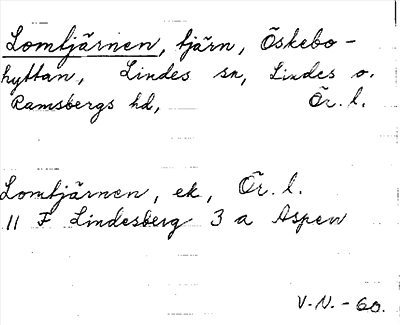 Lomtjärnen, tjärn, Öskebo-
hyttan, Lindes sn, Lindes o.
Ramsbergs hd, Ör. l.
Lomtjärnen, ek, Ör. l.
11 F Lindesberg 3 a Aspen
V.N. - 60.